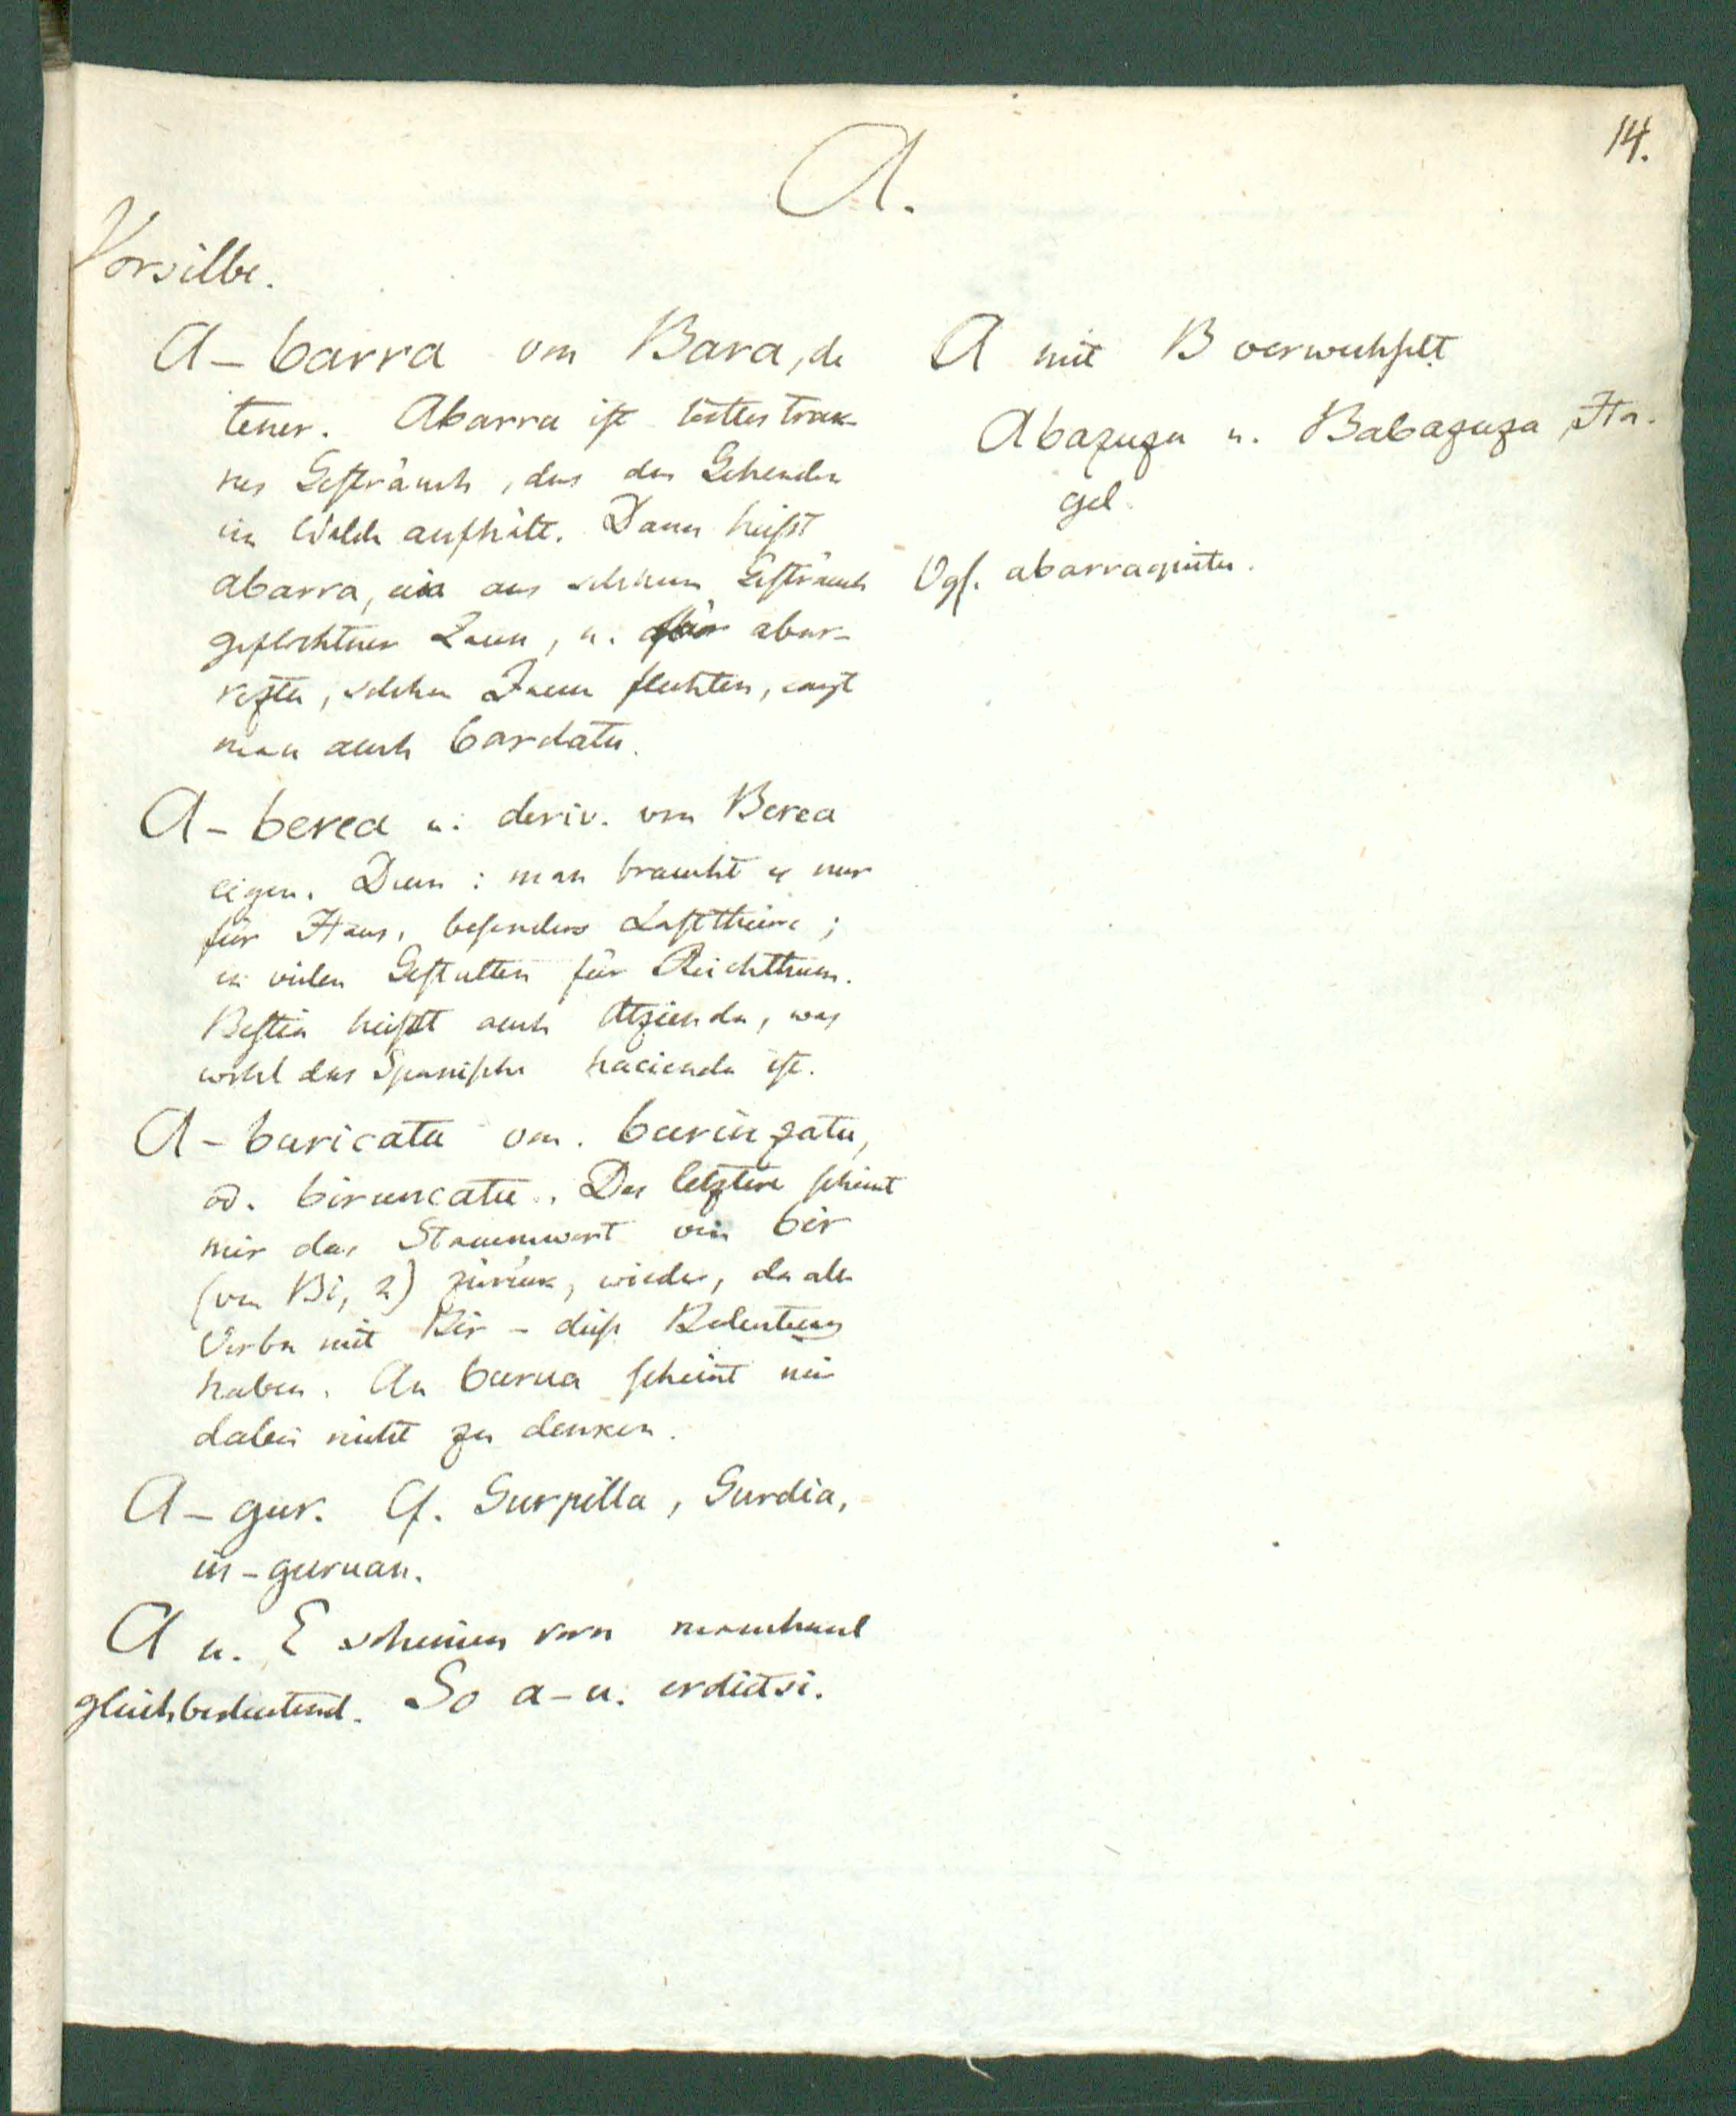 14.
A.
Vorsilbe.
A-barra von Bara, de
tener. Abarra ist trok-
nes Gesträuch, das den Gehenden
im Walde aufhält. Dann heißt
abarra, ein aus solchem Gesträuch
geflochtner Zaun, u. abar-
reztu, solchen Zaun flechten, sagt
man auch bardatu.
A-berea u. deriv. von Berea
eigen. Denn: man braucht es nur
für Haus, besonders Lastthiere;
in vielen Gestalten für Reichthum.
Bestia heißt auch Atzienda, was
wohl das Spanische hacienda ist.
A-buricatu von. burunzatu,
od. biruncatu. Das letztere scheint
mir das Stammwort von bir
(von Bi, 2) zurük, wieder, da alle
Verba mit Bir - diese Bedeutung
haben. An burua scheint mir
dabei nicht zu denken.
A-gur. Cf. Gurpilla, Gurdia,
in-guruan.
A u. E scheinen vorn manchmal
gleichbedeutend. So a- u. erdietsi.
A mit B verwechselt.
Abazuza u. Babazuza, Ha-
gel.
Vgl. abarraquitu.